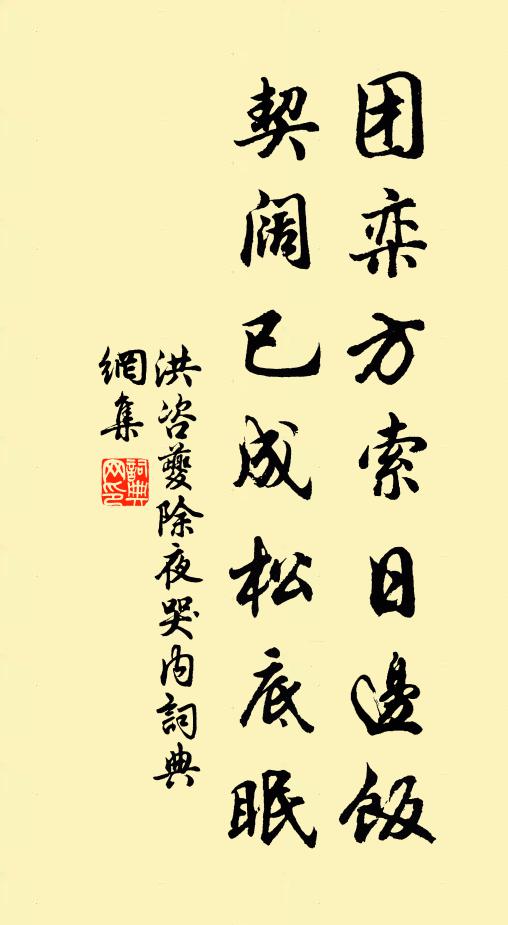 团栾方索日邊飯
契阔已成松底眠
洪咨夔除夜哭内詞典
網集
詞典
网印